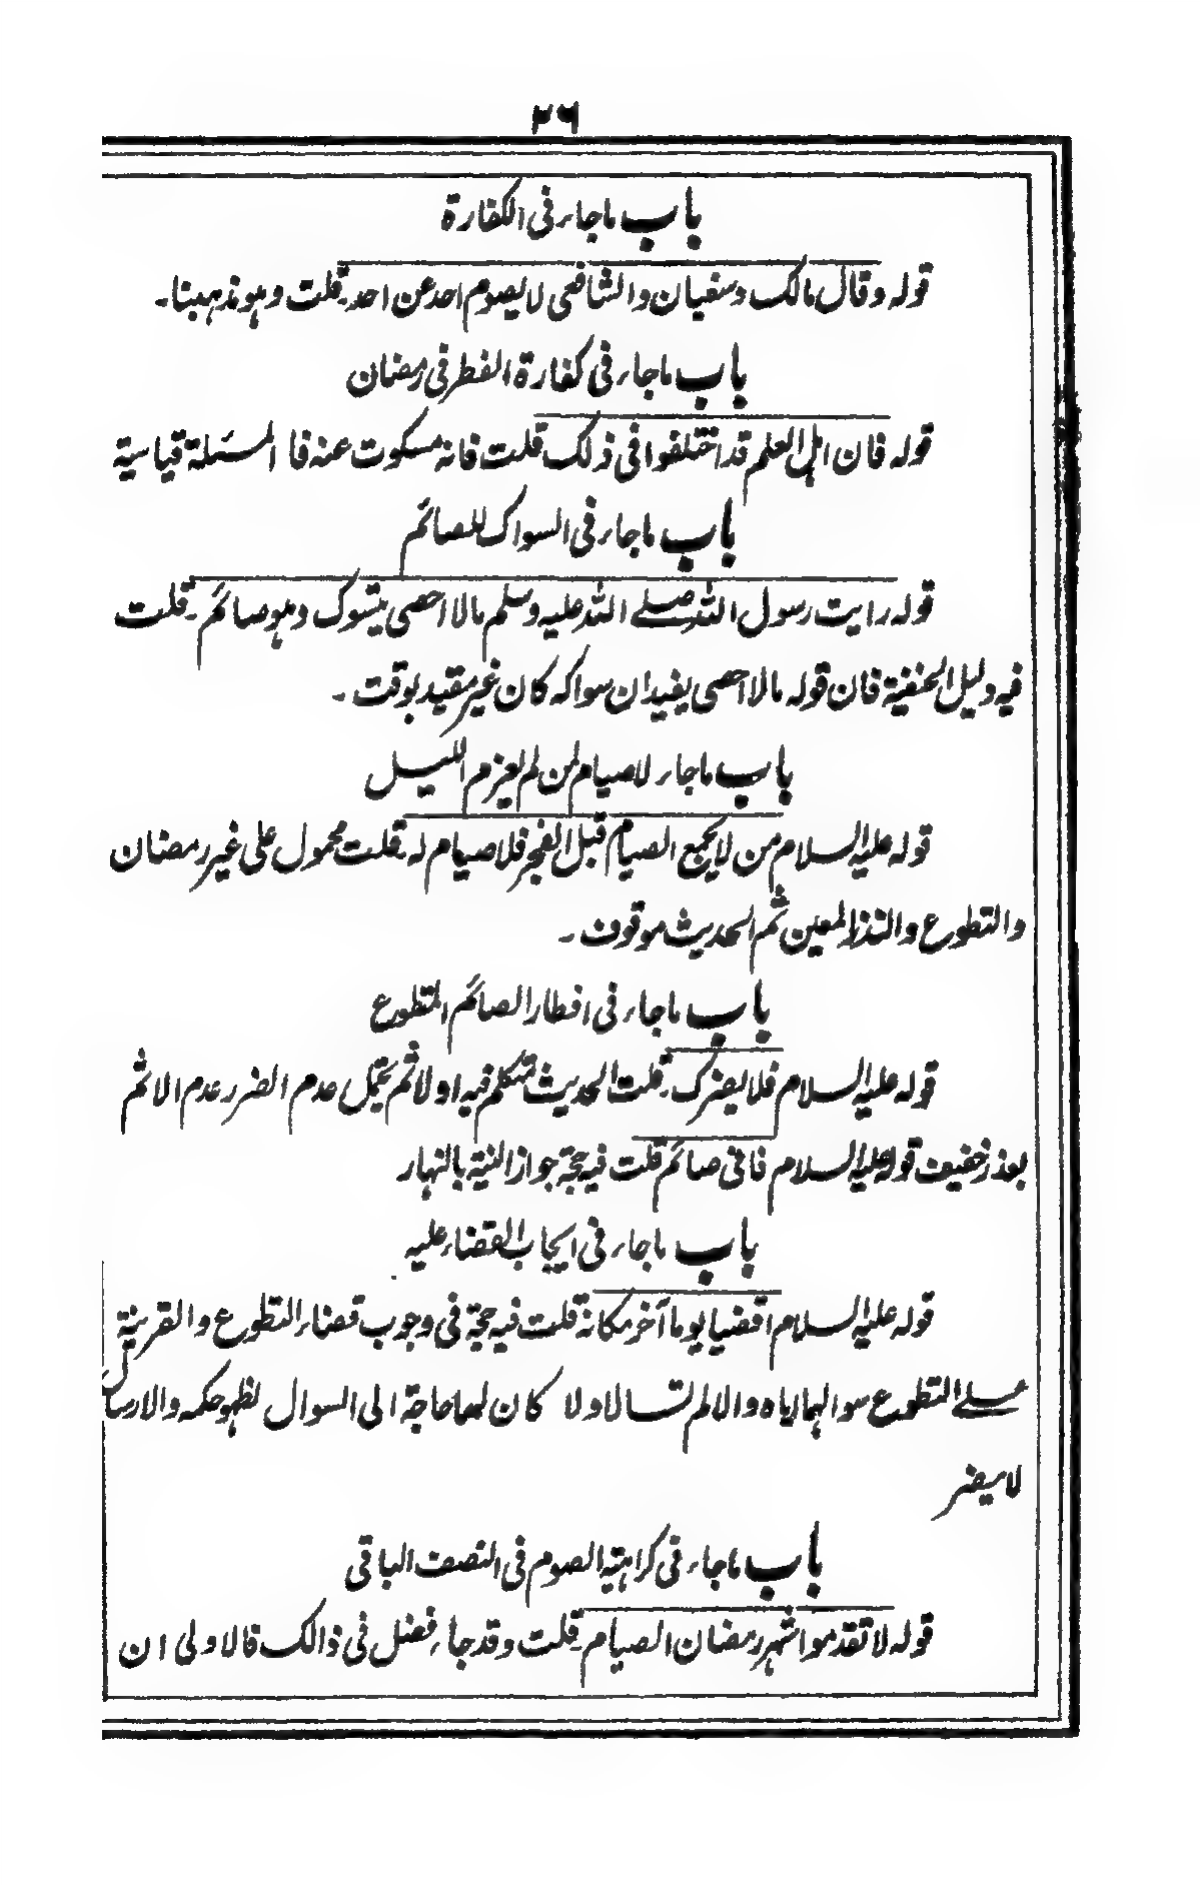 ٢٦
باب ماجاء فی الکفارة
قوله وقال مالک وسفیان والشافعی لا یصوم احد عن احد۔ قلت وهو مذهبنا۔
باب ماجاء فی کفارة الفطر فی رمضان
قوله فان اهل العلم قد اختلفوا فی ذلک قلت فانه مسکوت عنه فا المسئلة قیاسیة
باب ماجاء فی السواک للصائم
قوله رایت رسول الله صلے الله علیه وسلم مالا احصی یتسوک وهو صائم۔ قلت
فیه دلیل الحنفیة فان قوله مالا احصی یفید ان سواکه کان غیر مقید بوقت۔
باب ماجاء لاصیام لمن لم یعزم اللیل
قوله علیه السلام من لا یجمع الصیام قبل الفجر فلا صیام له۔ قلت محمول علی غیر رمضان
والتطوع والنذر المعین ثم الحدیث موقوف۔
باب ماجاء فی افطار الصائم المتطوع
قوله علیه السلام فلا یضرک۔ قلت الحدیث متکلم فیه اولا ثم یحتمل عدم الضرر عدم الاثم
بعذر خفیف قوله علیه السلام فانی صائم قلت فیه حجة جواز النیة بالنهار
باب ماجاء فی ایجاب القضاء علیه
قوله علیه السلام اقضیا یوما آخر مکانه قلت فیه حجة فی وجوب قضاء التطوع والقرینة
علے التطوع سوالهما ایاه والا لم تسالا ولا کان لهما حاجة الی السوال لظهو حکمه والارسال
لا یضر
باب ماجاء فی کراهیة الصوم فی النصف الباقی
قوله لا تقدموا شهر رمضان الصیام۔ قلت وقد جاء فضل فی ذالک فالاولی ان